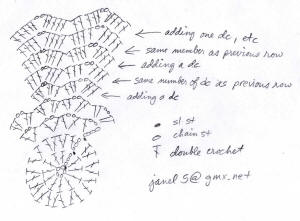 adding one dc, etc
same number as previous row
adding a dc
same number of dc as previous row
adding a dc
sl st
chain st
double crochet
janel5@gmx.net